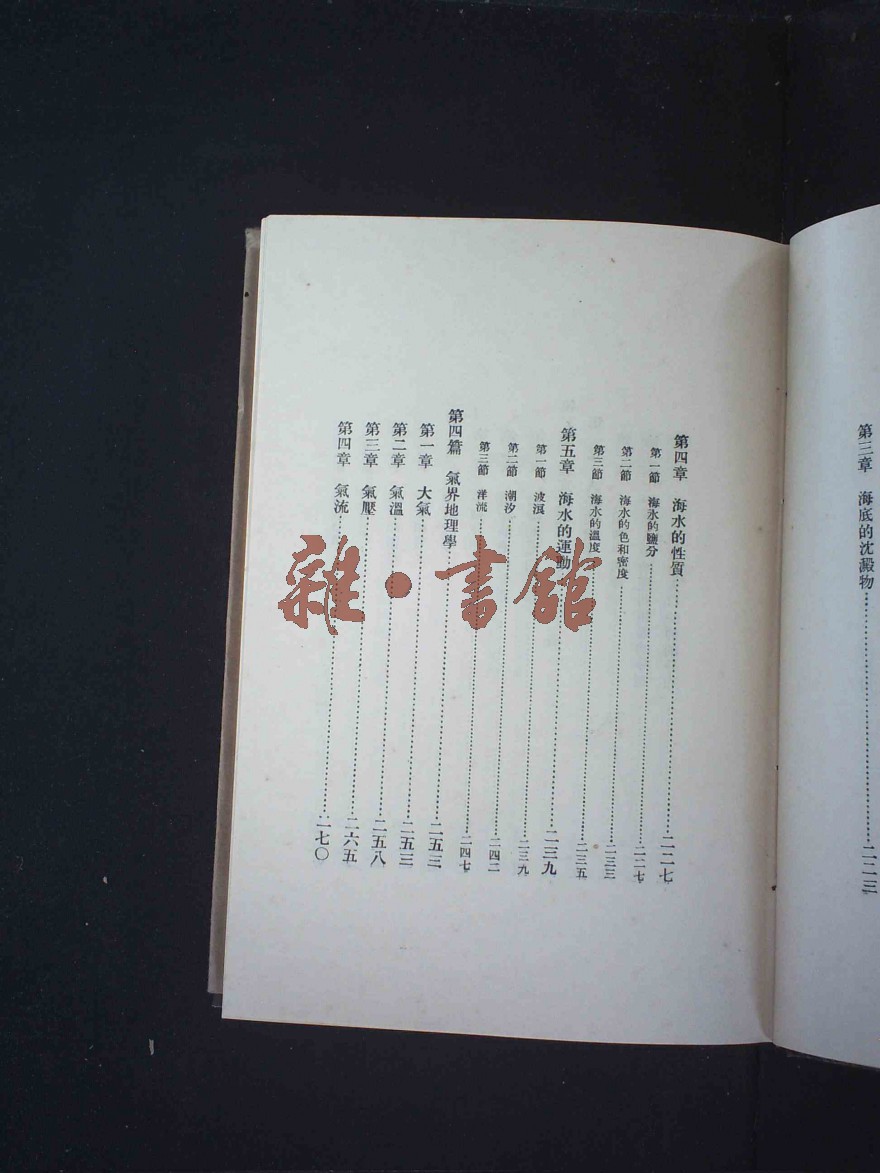 第三章　海底的沈澱物……二二三
第四章　海水的性質……二二七
第一節　海水的鹽分……二二七
第二節　海水的色和密度……二三三
第三節　海水的溫度……二三五
第五章　海水的運動……二三九
第一節　波浪……二三九
第二節　潮汐……二四二
第三節　洋流……二四七
第四篇　氣界地理學……二五三
第一章　大氣……二五三
第二章　氣溫……二五八
第三章　氣壓……二六五
第四章　氣流……二七〇
雜·書館